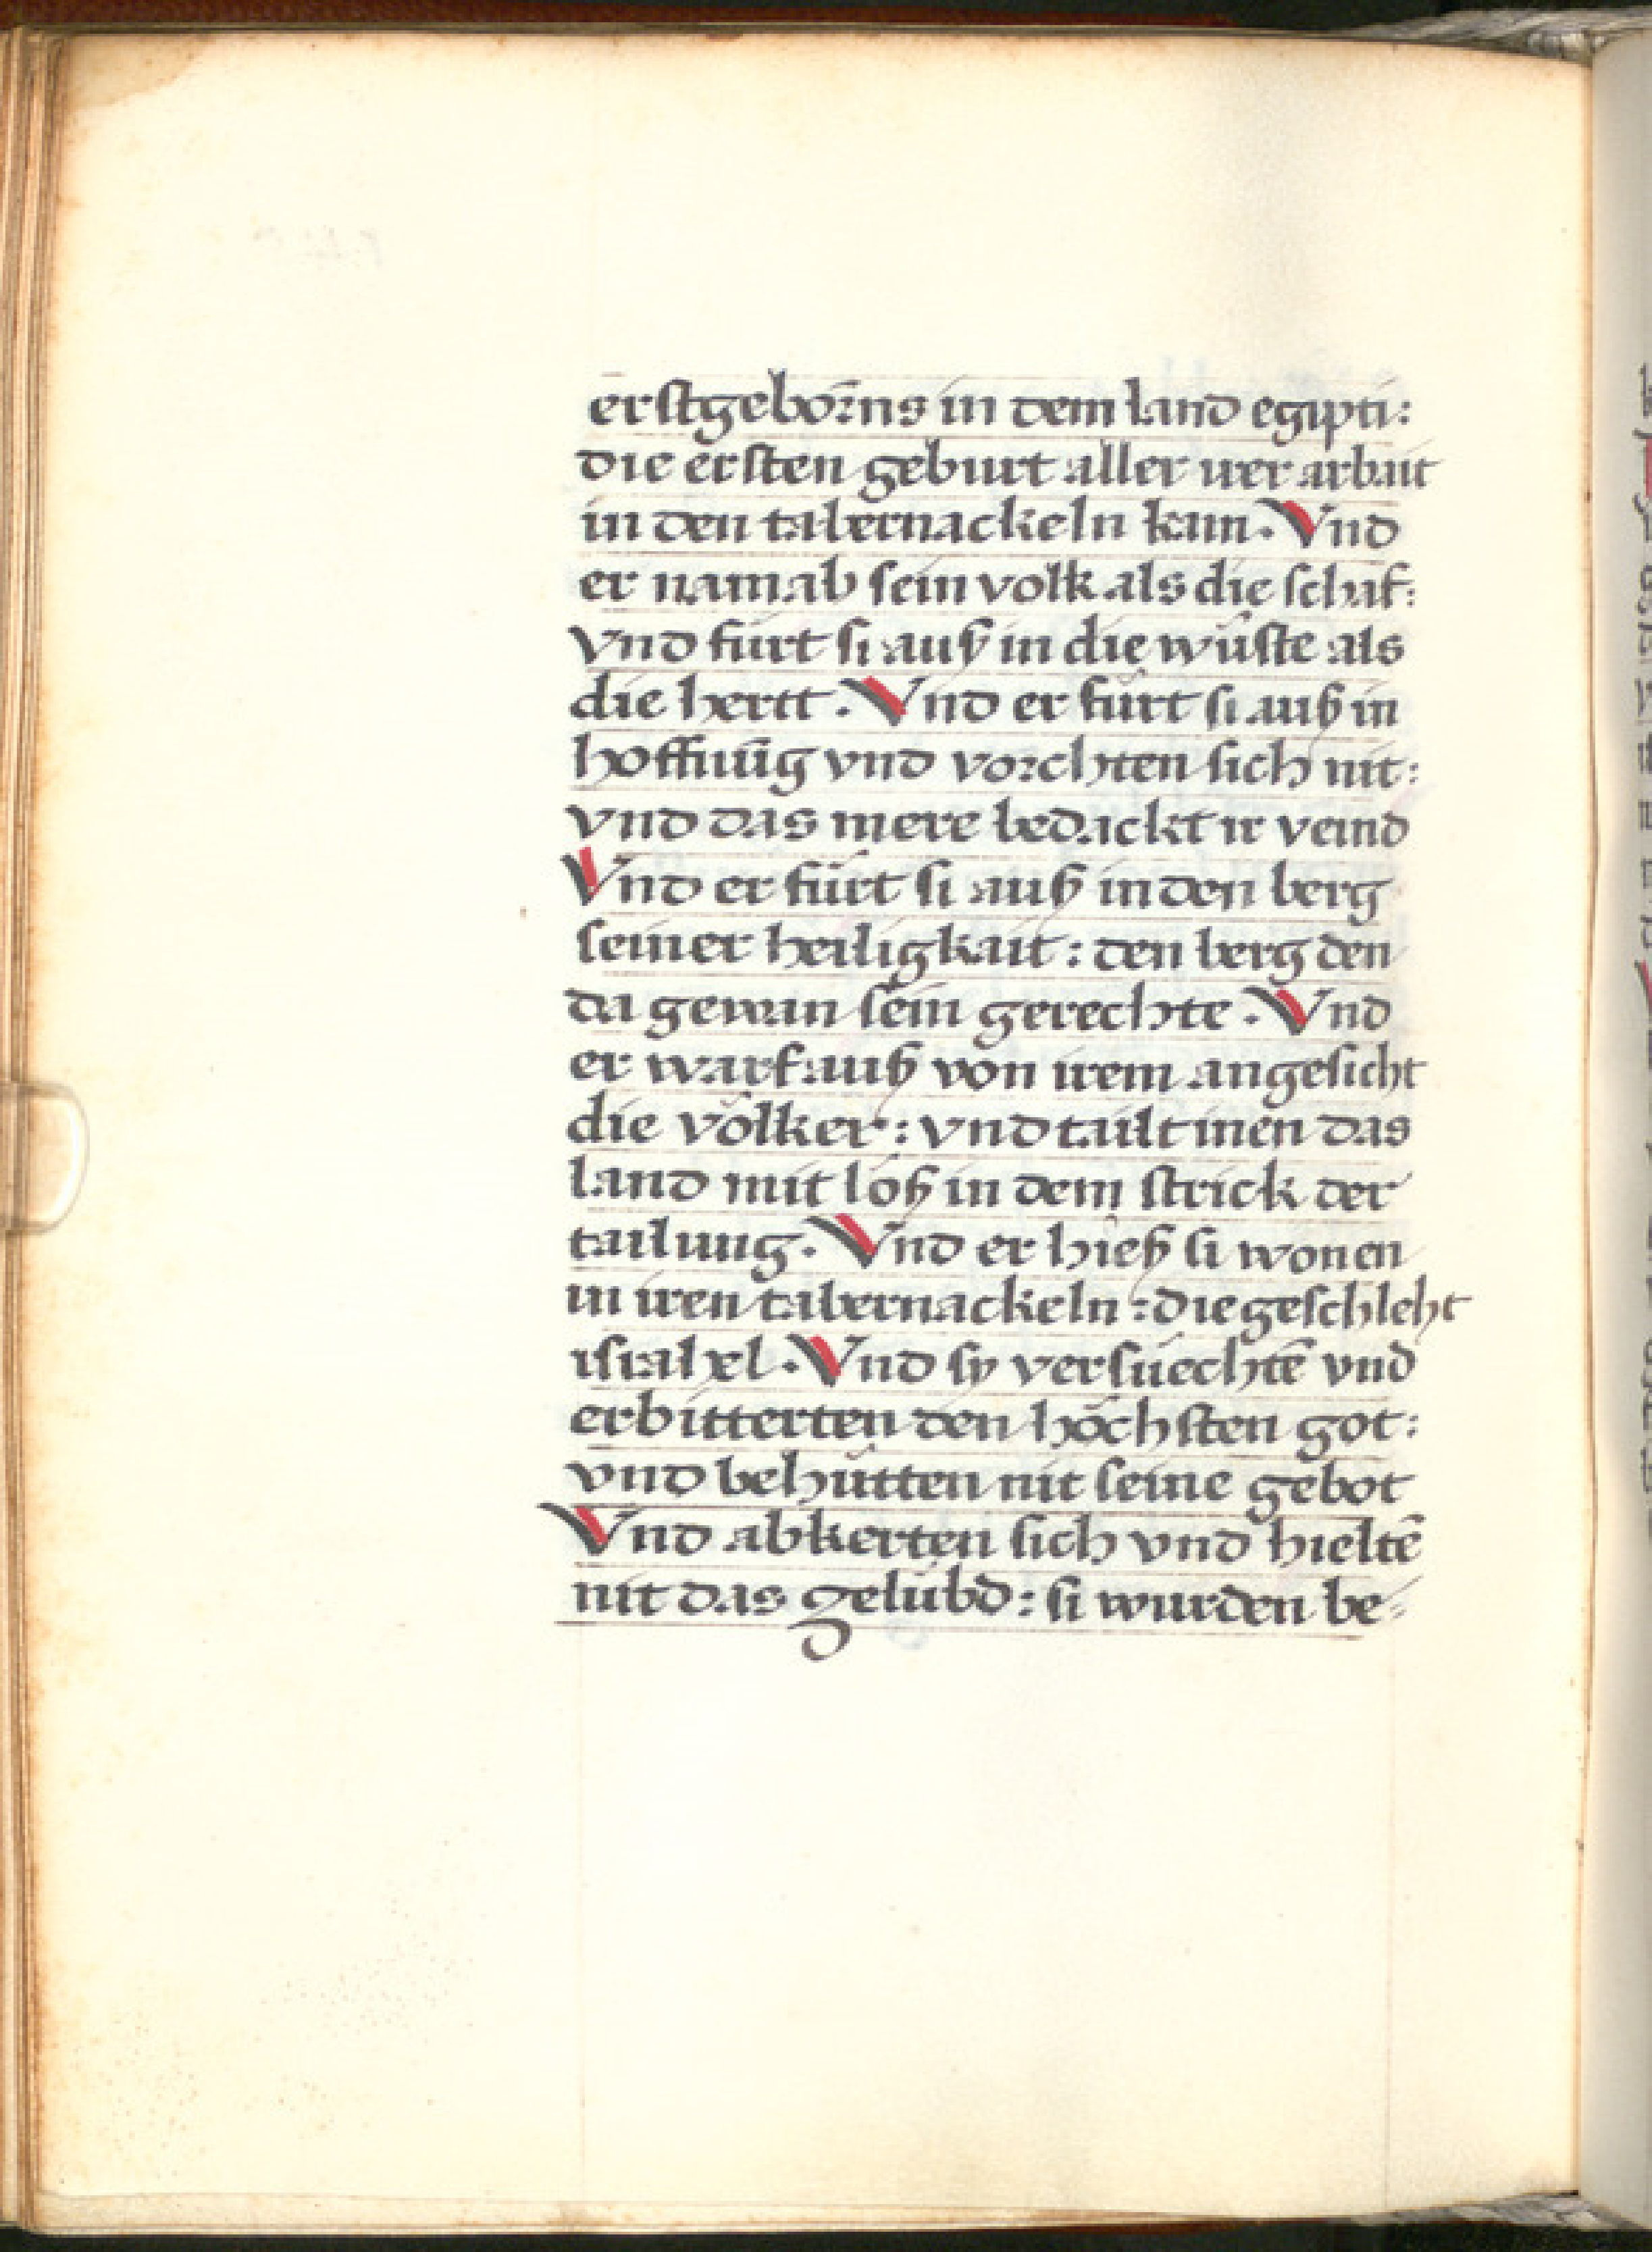 erstgebōrns in dem land egipti:
die ersten geburt aller irer arbait
in den tabernackeln kam. Vnd
er nam ab sein volk als die schaf:
vnd fürt si auß in die wüste als
die hertt. Vnd er fürt si auß in
hoffnūg vnd vorchten sich nit:
vnd das mere bedackt ir veind
Vnd er fürt si auß in den berg
seiner heiligkait: den berg den
da gewan sein gerechte. Vnd
er warf auß von irem angesicht
die völker: vnd tailt inen das
land mit loß in dem strick der
tailung. Vnd er hieß si wonen
in iren tabernackeln: die geschleht
israhel. Vnd sy versuechtē vnd
erbitterten den höchsten got:
vnd behütten nit seine gebot
Vnd abkerten sich vnd hieltē
nit das gelübd: si wurden be-